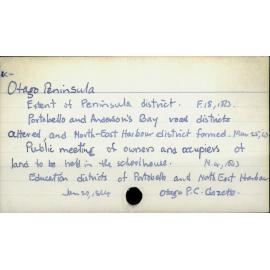 Otago Peninsula
Extent of Peninsula district. F.18, 1863.
Portobello and Anderson's Bay road districts
altered, and North-East Harbour district formed. Mar 25, 63
Public meeting of owners and occupiers of
land to be held in the schoolhouse. N.4, 1863
Education districts of Portobello and North East Harbour
Jan 20, 1864 Otago P.C. Gazette.